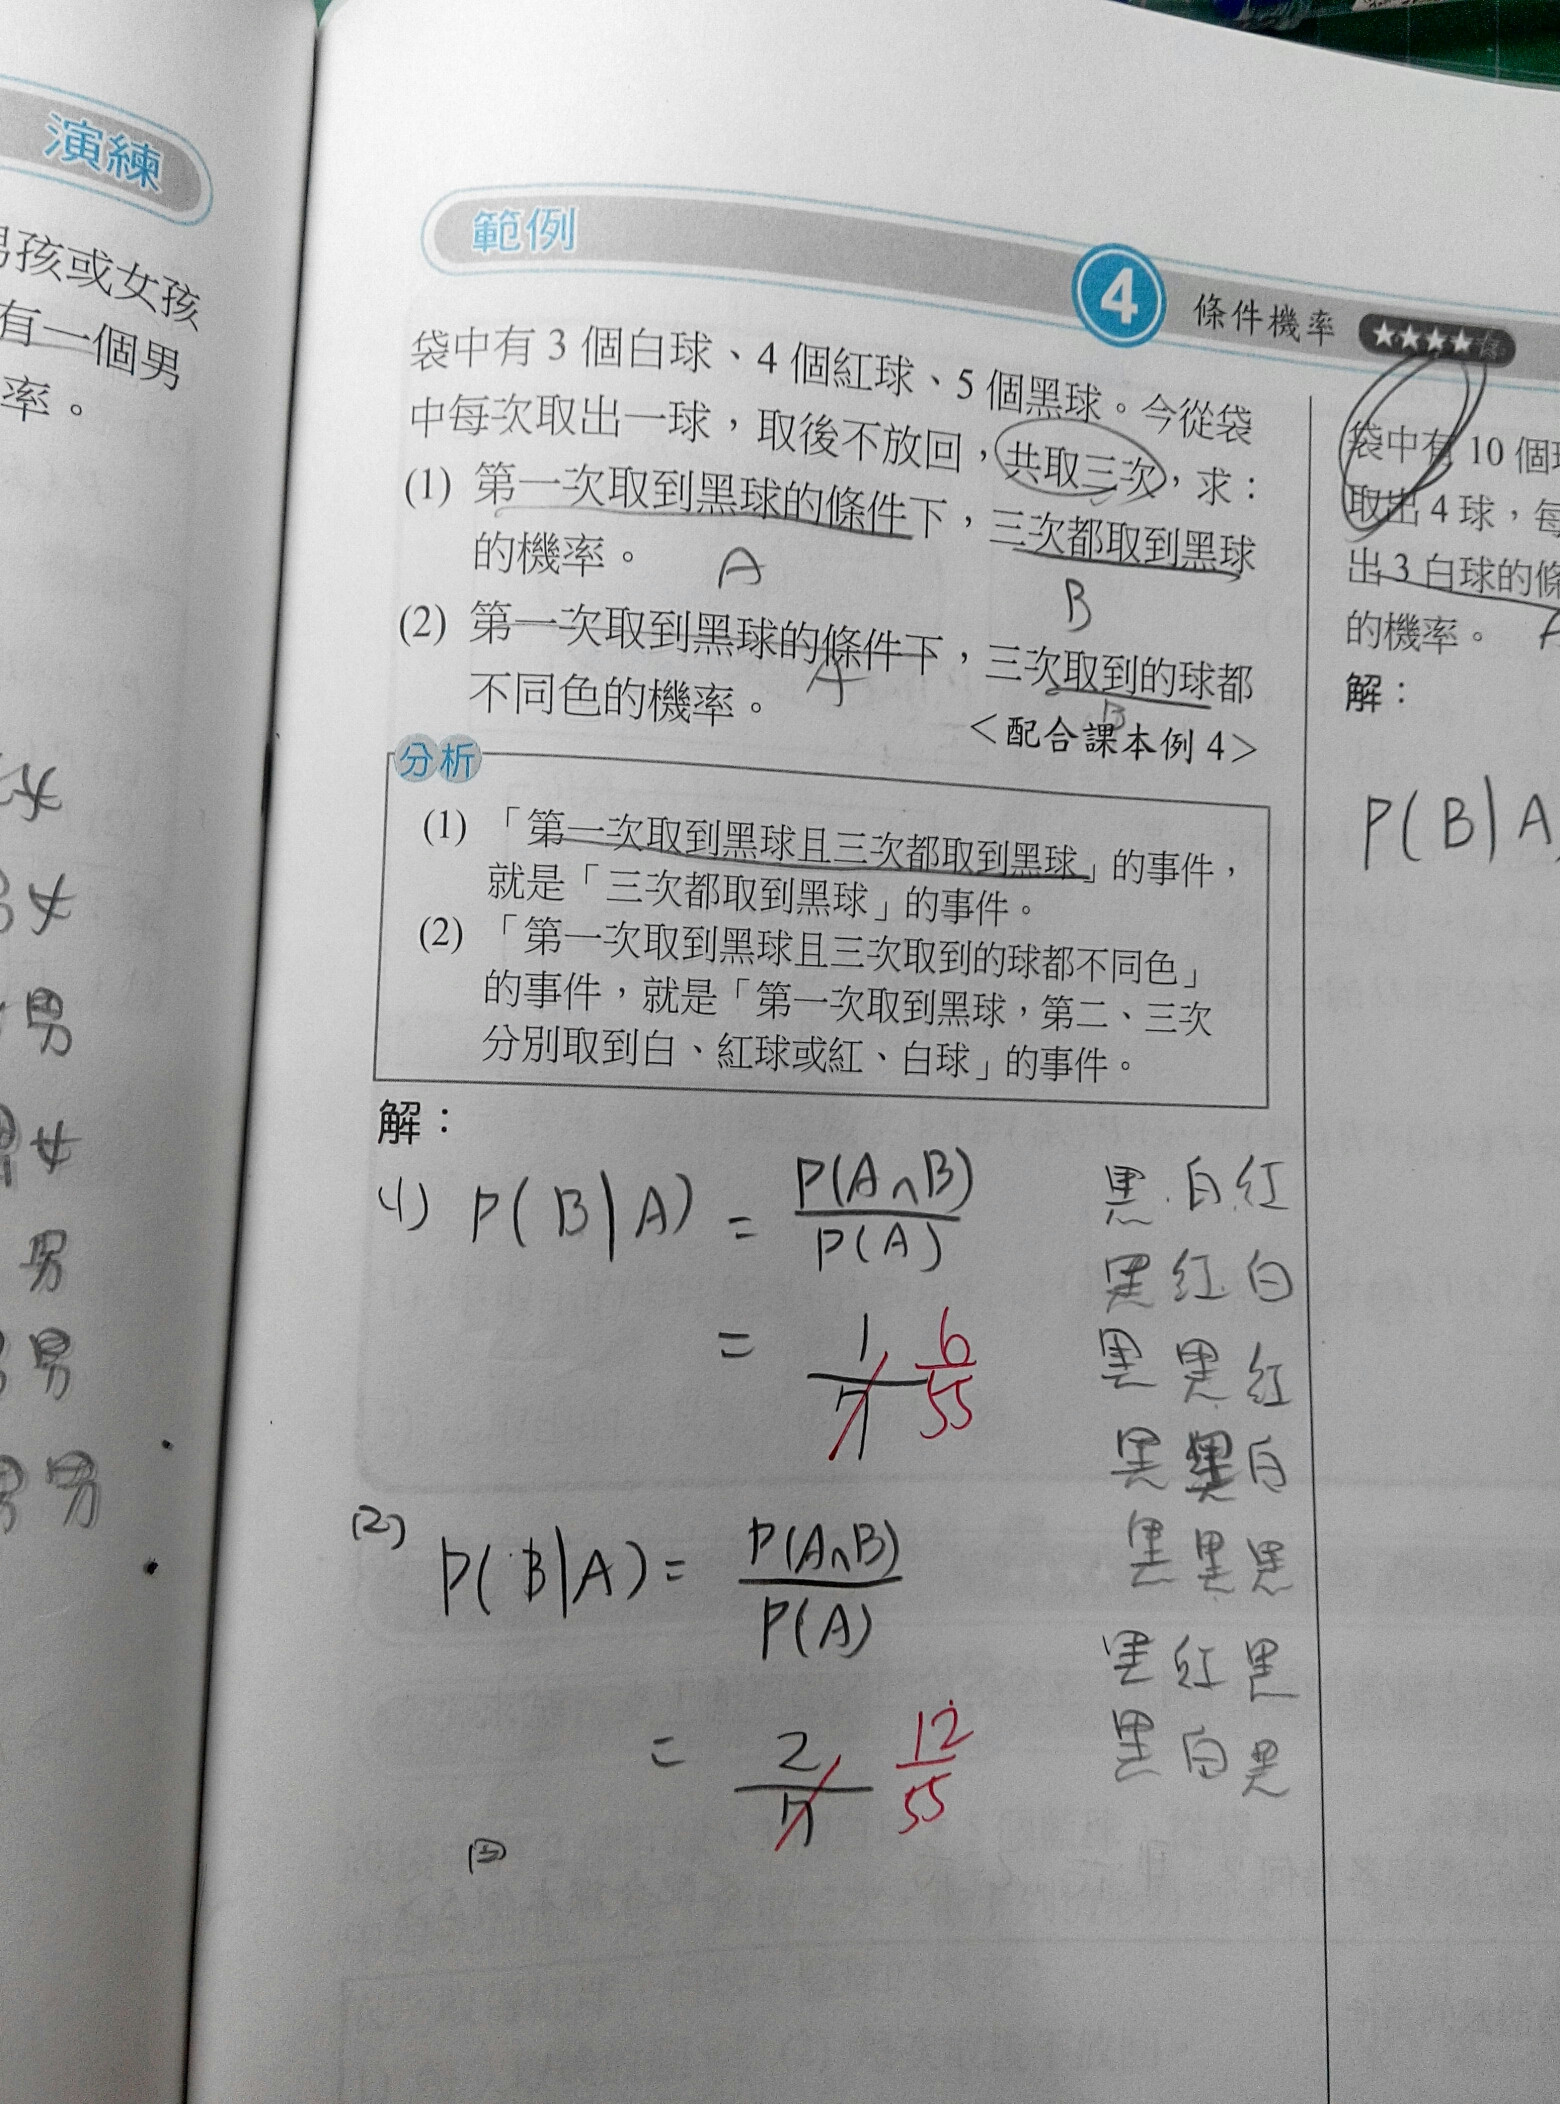 演練
男孩或女孩
有一個男
率。
女
男女
男
男女
男
男男
男男
範例
4 條件機率 ★★★★
袋中有 3 個白球、4 個紅球、5 個黑球。今從袋
中每次取出一球，取後不放回，共取三次，求：
(1) 第一次取到黑球的條件下，三次都取到黑球
的機率。
A
B
(2) 第一次取到黑球的條件下，三次取到的球都
不同色的機率。
A
B
＜配合課本例 4＞
分析
(1) 「第一次取到黑球且三次都取到黑球」的事件，
就是「三次都取到黑球」的事件。
(2) 「第一次取到黑球且三次取到的球都不同色」
的事件，就是「第一次取到黑球，第二、三次
分別取到白、紅球或紅、白球」的事件。
解：
(1) P(B|A) = P(A∩B)/P(A)
= 1/7 6/55
(2) P(B|A) = P(A∩B)/P(A)
= 2/7 12/55
黑白紅
黑紅白
黑黑紅
黑黑白
黑黑黑
黑紅黑
黑白黑
袋中有 10 個
取出 4 球，每
出 3 白球的條
的機率。
A
解：
P(B|A